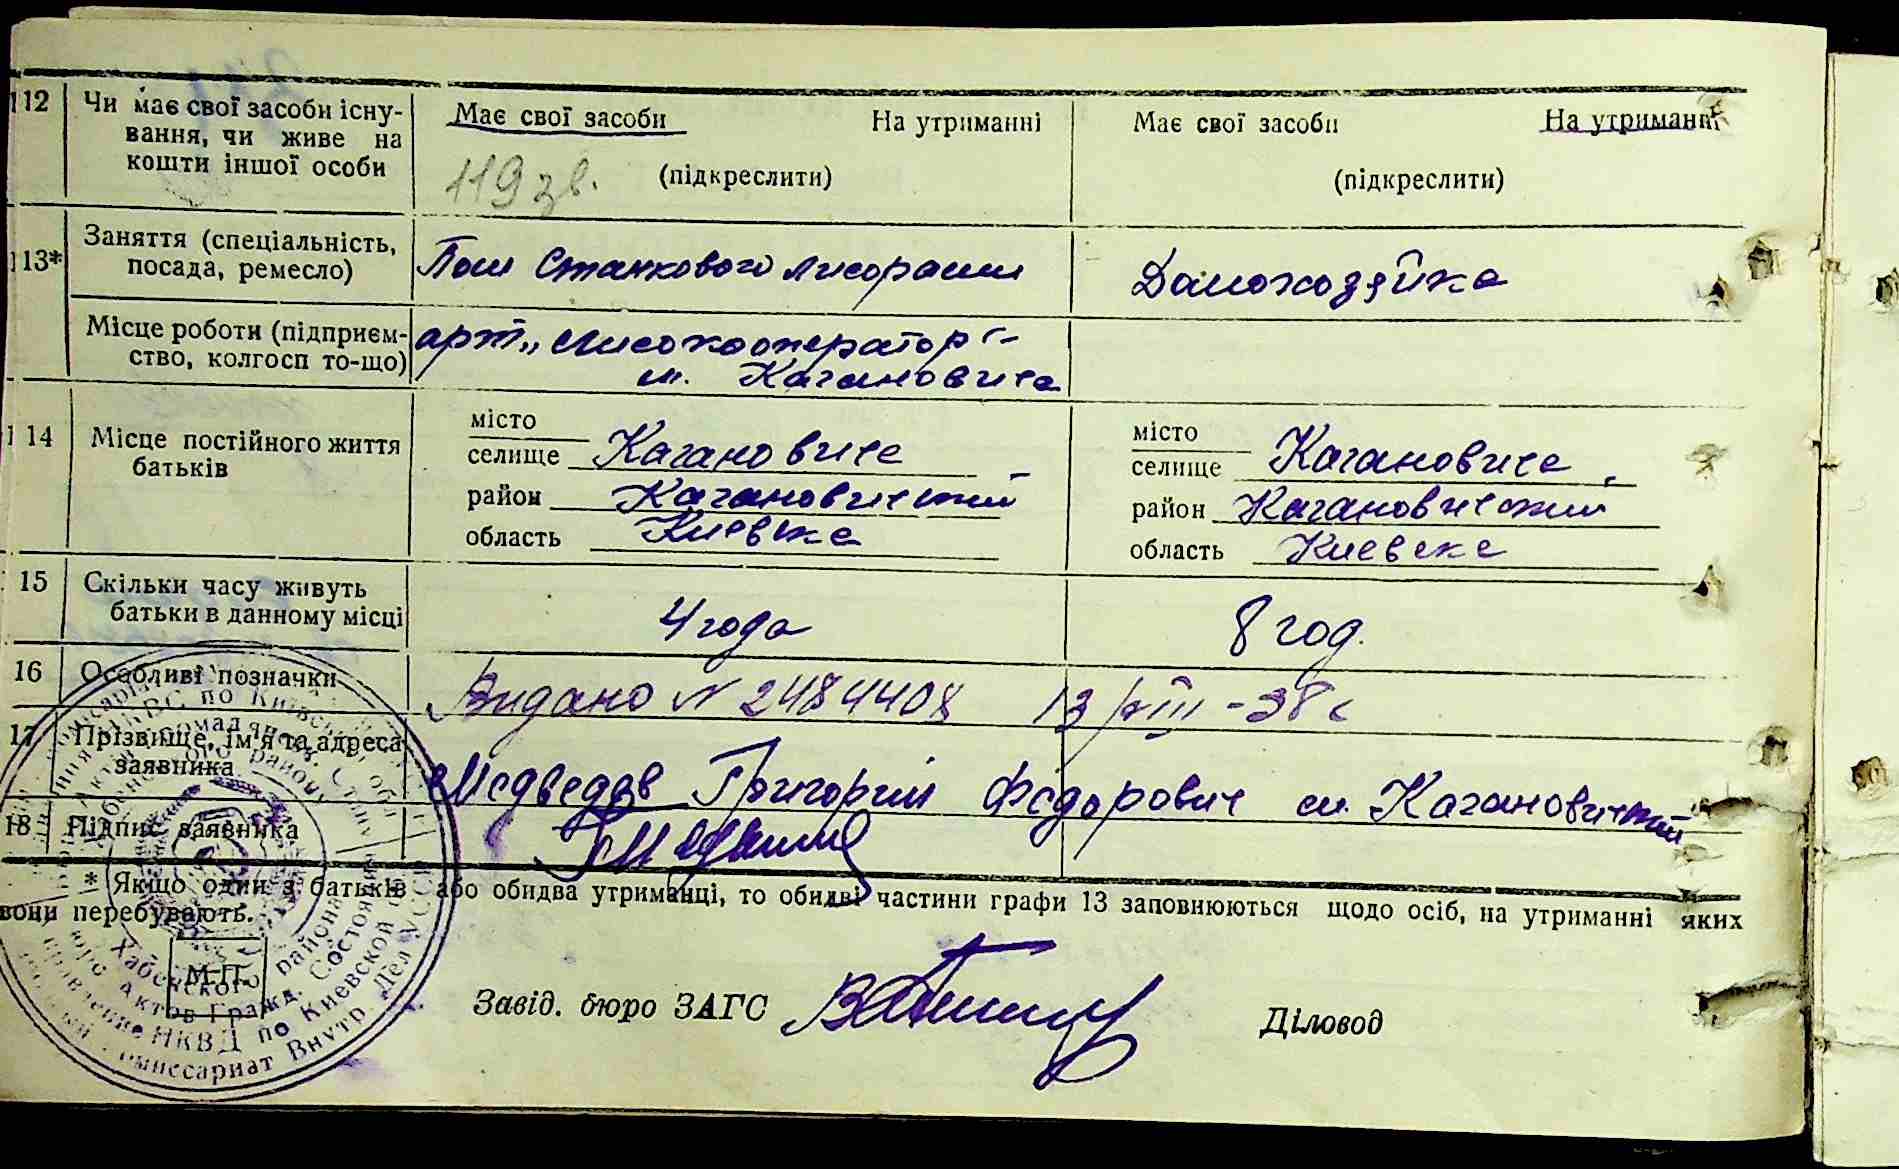 12 Чи має свої засоби існу-
вання, чи живе на
кошти іншої особи
Має свої засоби На утриманні
119 зв. (підкреслити)
Має свої засоби На утриманні
(підкреслити)
13* Заняття (спеціальність,
посада, ремесло)
Станкового
Домохозяйка
Місце роботи (підприєм-
ство, колгосп то-що)
арт.
м. Кагановича
14 Місце постійного життя
батьків
місто
селище Кагановиче
район Кагановичский
область Киевска
місто
селище Кагановиче
район Кагановичский
область Киевска
15 Скільки часу живуть
батьки в данному місці
4 года
8 год.
16 Особливі позначки
Видано N 2484408 13/VIII-38 г
17 Прізвище, ім'я та адреса
заявника
Медведев Григорий Федорович м. Кагановичский
18 Підпис заявника
* Якщо один з батьків або обидва утриманці, то обидві частини графи 13 заповнюються щодо осіб, на утриманні яких
вони перебувають.
М.П.
Завід. бюро ЗАГС
Діловод
Хабенского районного
Бюро Актов Гражд. Состояния
Управление НКВД по Киевской обл.
Комиссариат Внутр. Дел УССР